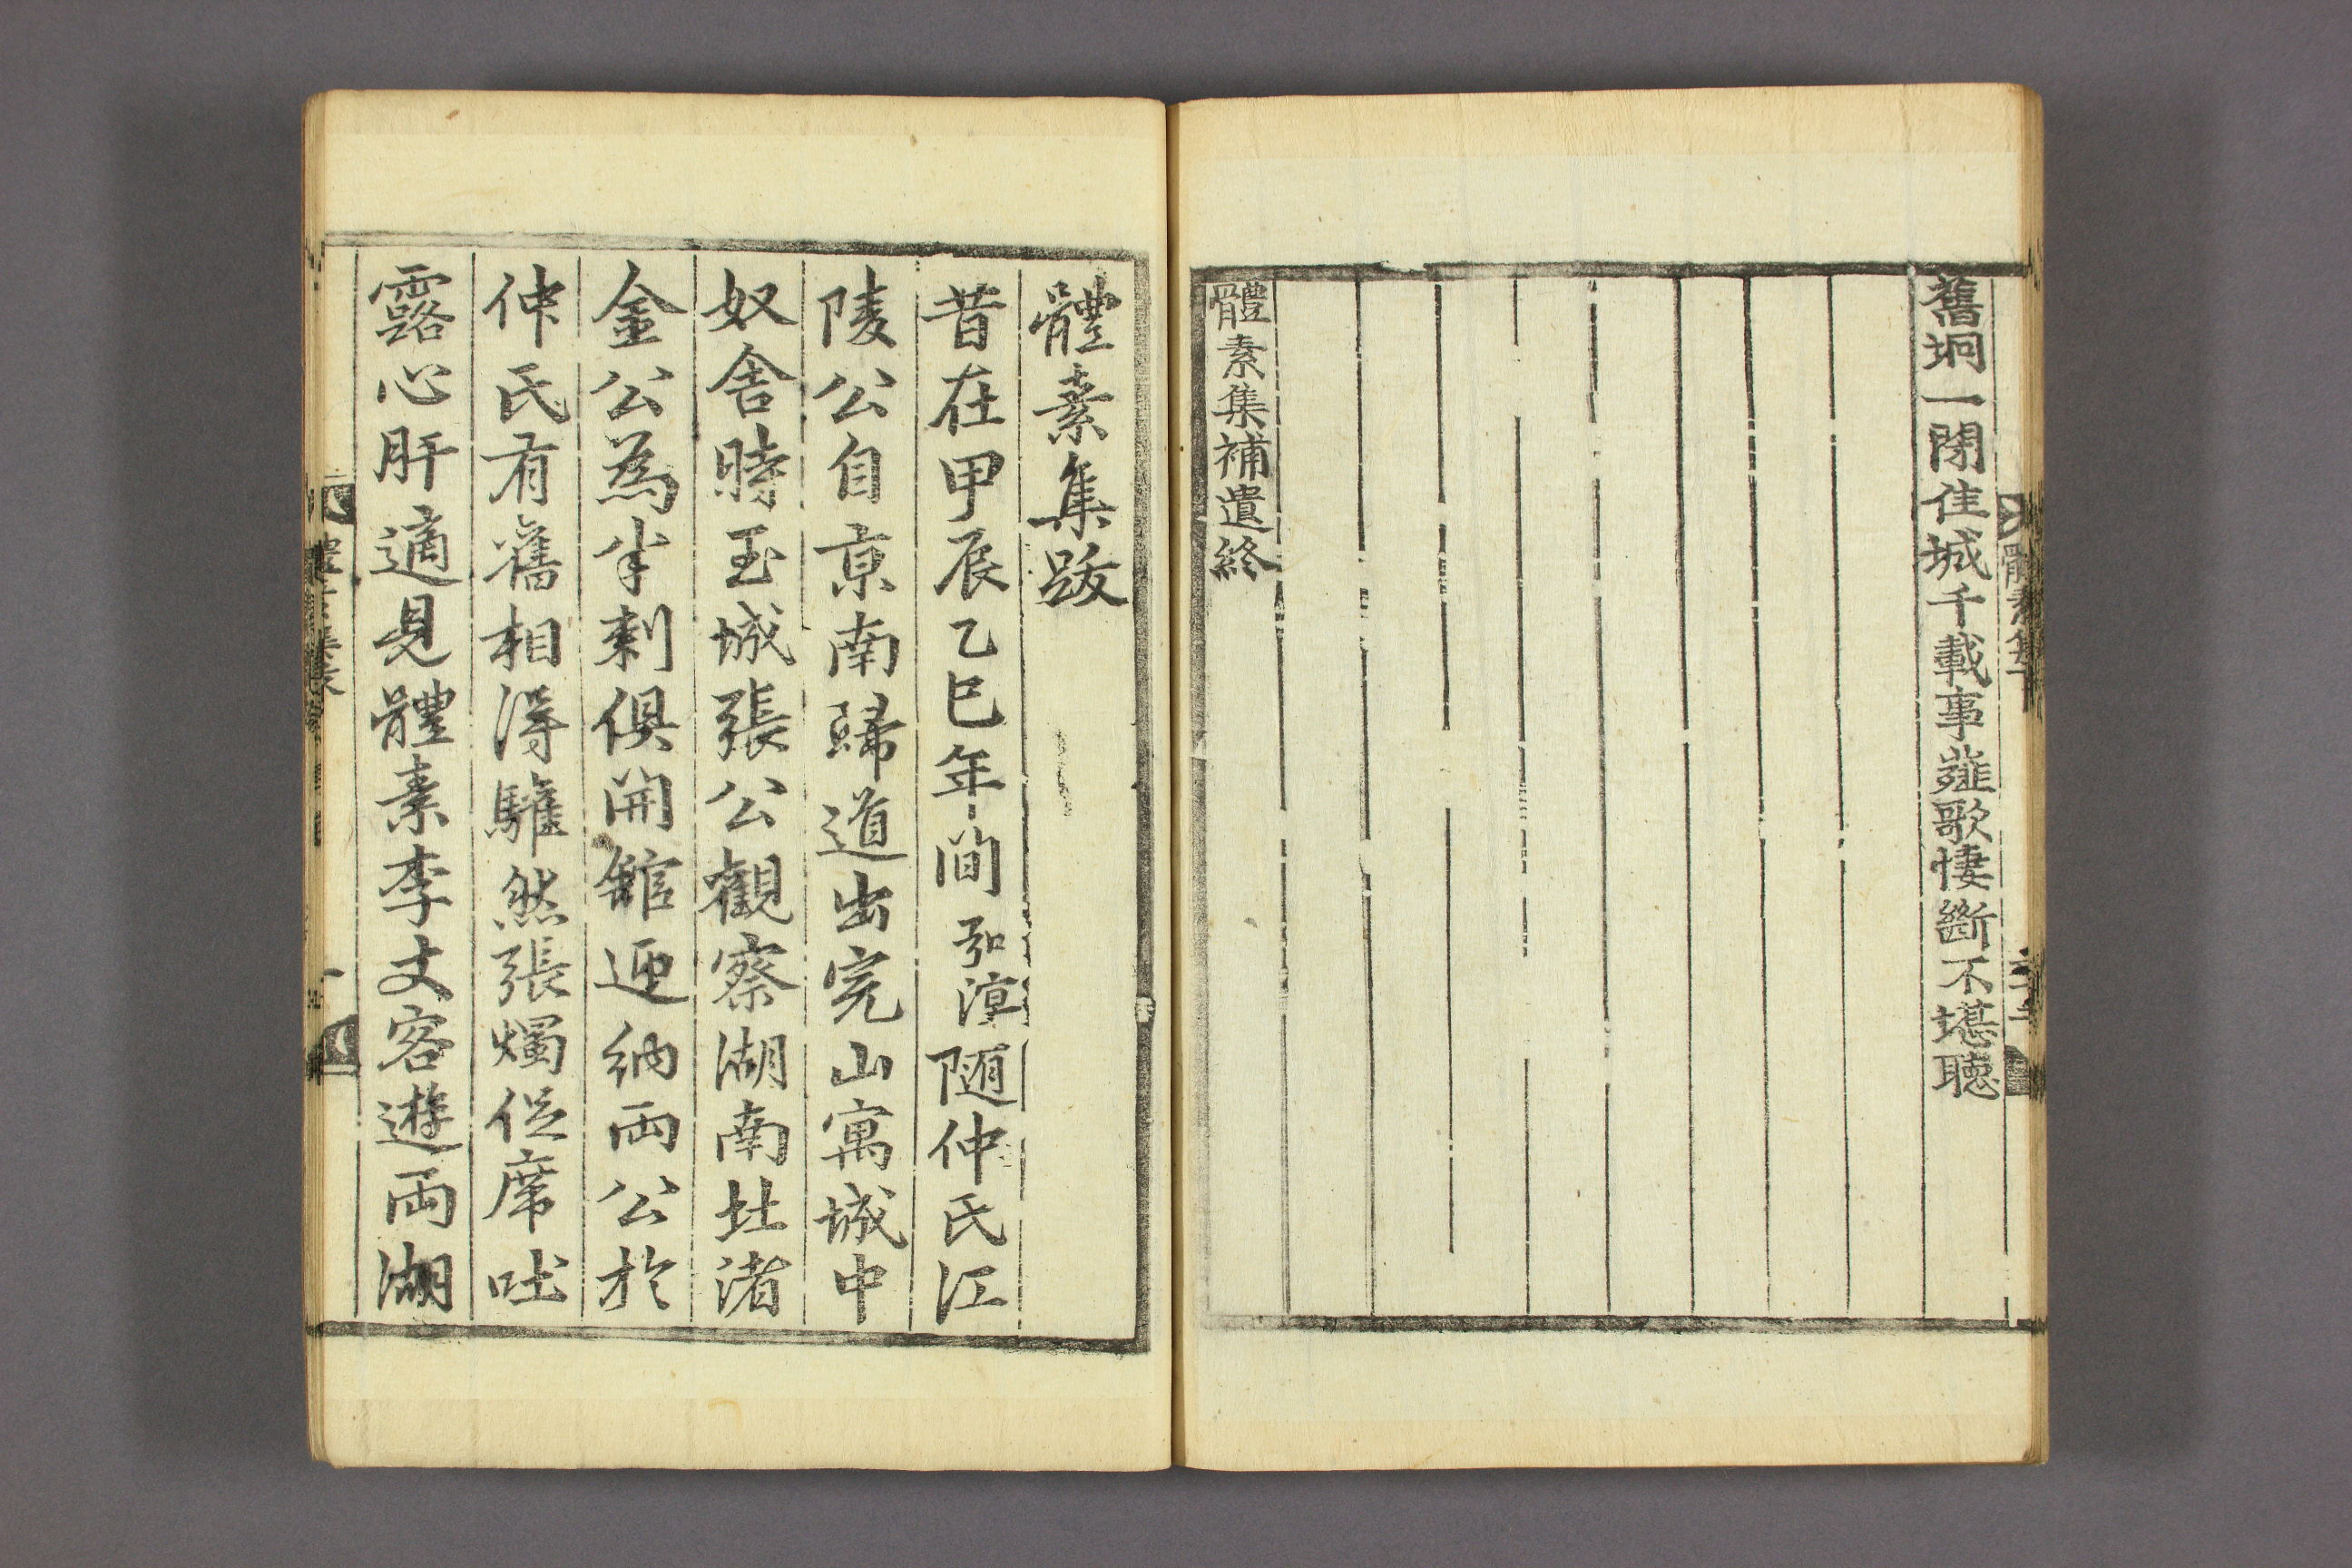 舊坰一閉佳城千載事薤歌悽斷不堪聽
體素集補遺終
體素集跋
昔在甲辰乙巳年間弘渟随仲氏江
陵公自京南歸道出完山寓城中
奴舍時玉城張公觀察湖南北渚
金公爲半剌俱開館迎納兩公於
仲氏有舊相得驩然張燭促席吐
露心肝適見體素李丈客遊兩湖